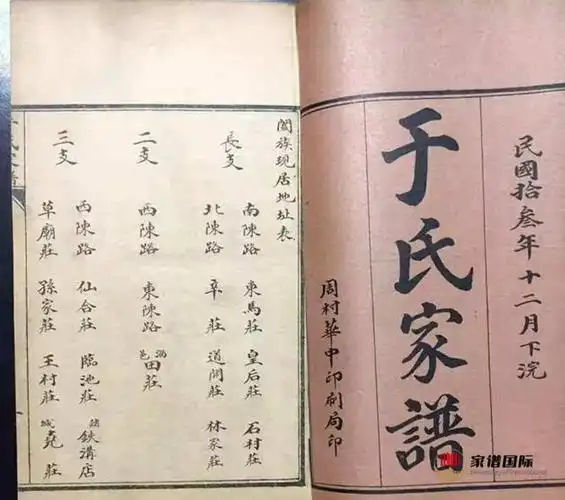 民國拾叁年十二月下浣
于氏家譜
周村華中印刷局印
闔族現居地址表
長支
南陳路 東馬莊 皇后莊 石村莊
北陳路 辛莊 道開莊 林家莊
二支
西陳路 東陳路 田莊
三支
西陳路 仙合莊 臨池莊 鉄溝店
草廟莊 孫家莊 王村莊 城堯莊
家谱国际